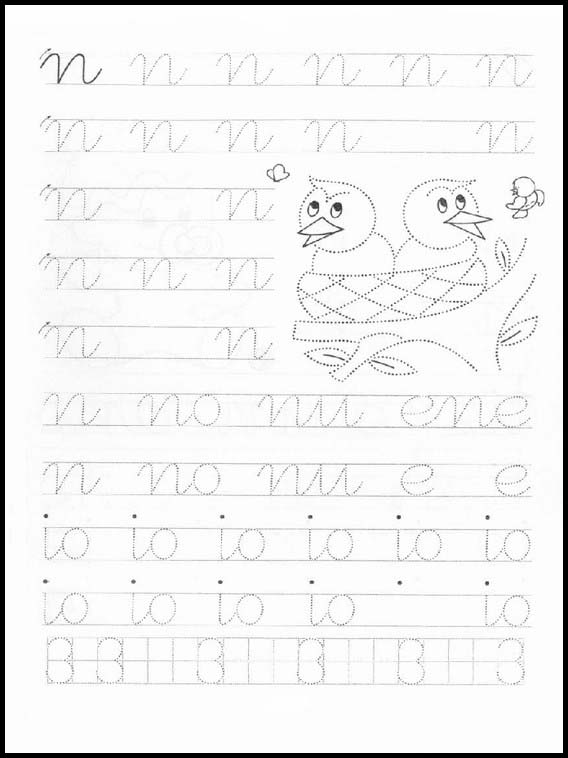 n n n n n n
n n n n n
n n
n n n
n n
n no nu ene
n no nu e e
io io io io io io
io io io io io
3 3 3 3 3 3